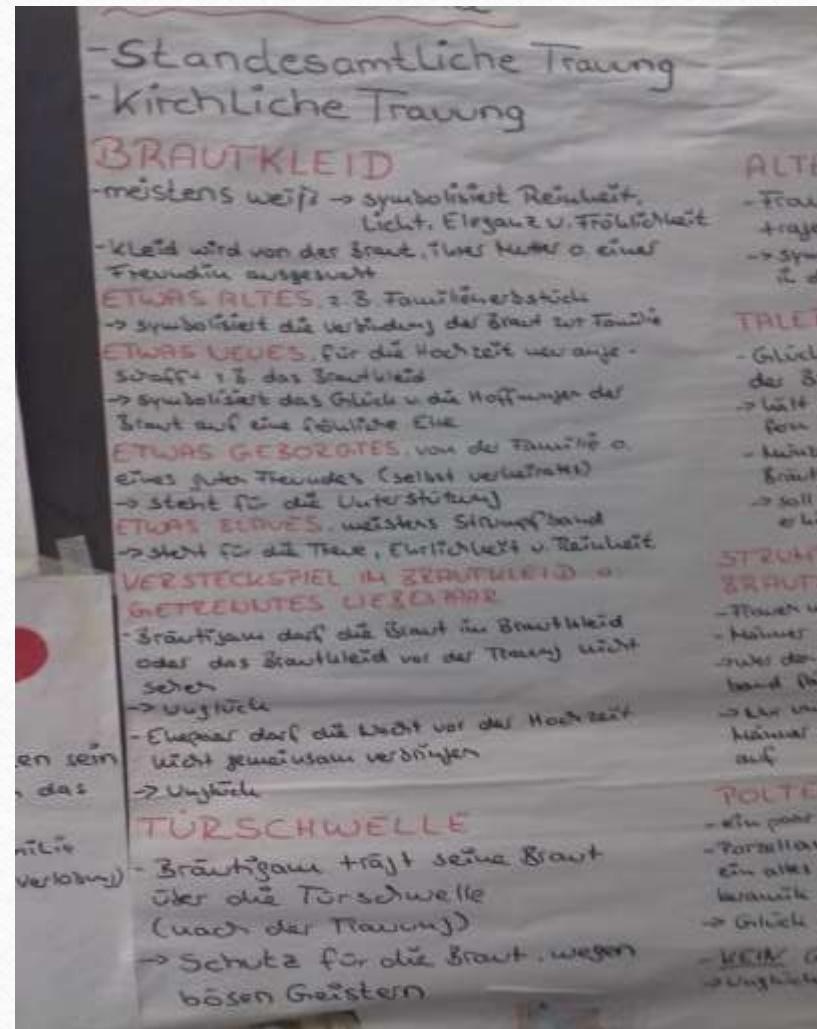 -Standesamtliche Trauung
-Kirchliche Trauung
BRAUTKLEID
-meistens weiß → symbolisiert Reinheit,
Licht, Eleganz u. Fröhlichkeit
-Kleid wird von der Braut, ihrer Mutter o. einer
Freundin ausgesucht
ETWAS ALTES, z.B. Familienerbstück
→ symbolisiert die Verbindung der Braut zur Familie
ETWAS NEUES, für die Hochzeit neu ange-
schafft z.B. das Brautkleid
→ symbolisiert das Glück u. die Hoffnungen der
Braut auf eine fröhliche Ehe
ETWAS GEBORGTES, von der Familie o.
eines guten Freundes (selbst verheiratet)
→ steht für die Unterstützung
ETWAS BLAUES, meistens Strumpfband
→ steht für die Treue, Ehrlichkeit u. Reinheit
VERSTECKSPIEL IM BRAUTKLEID o.
GETRENNTES LIEBESPAAR
- Bräutigam darf die Braut im Brautkleid
oder das Brautkleid vor der Trauung nicht
sehen
→ Unglück
- Ehepaar darf die Nacht vor der Hochzeit
nicht gemeinsam verbringen
→ Unglück
TÜRSCHWELLE
- Bräutigam trägt seine Braut
über die Türschwelle
(nach der Trauung)
→ Schutz für die Braut, wegen
bösen Geistern
ALTE
- Frau
trage
→ sym
TALE
- Glück
der B
→ hält
- Münz
Bräut
→ soll
STRUM
BRAUT
- Frauen u
- Männer
band
Männer
auf
POLTE
- ein paar
- Porzellan
ein altes
Keramik
→ Glück
- KEIN G
→ Unglück
en sein
das
milie
Verlobung)